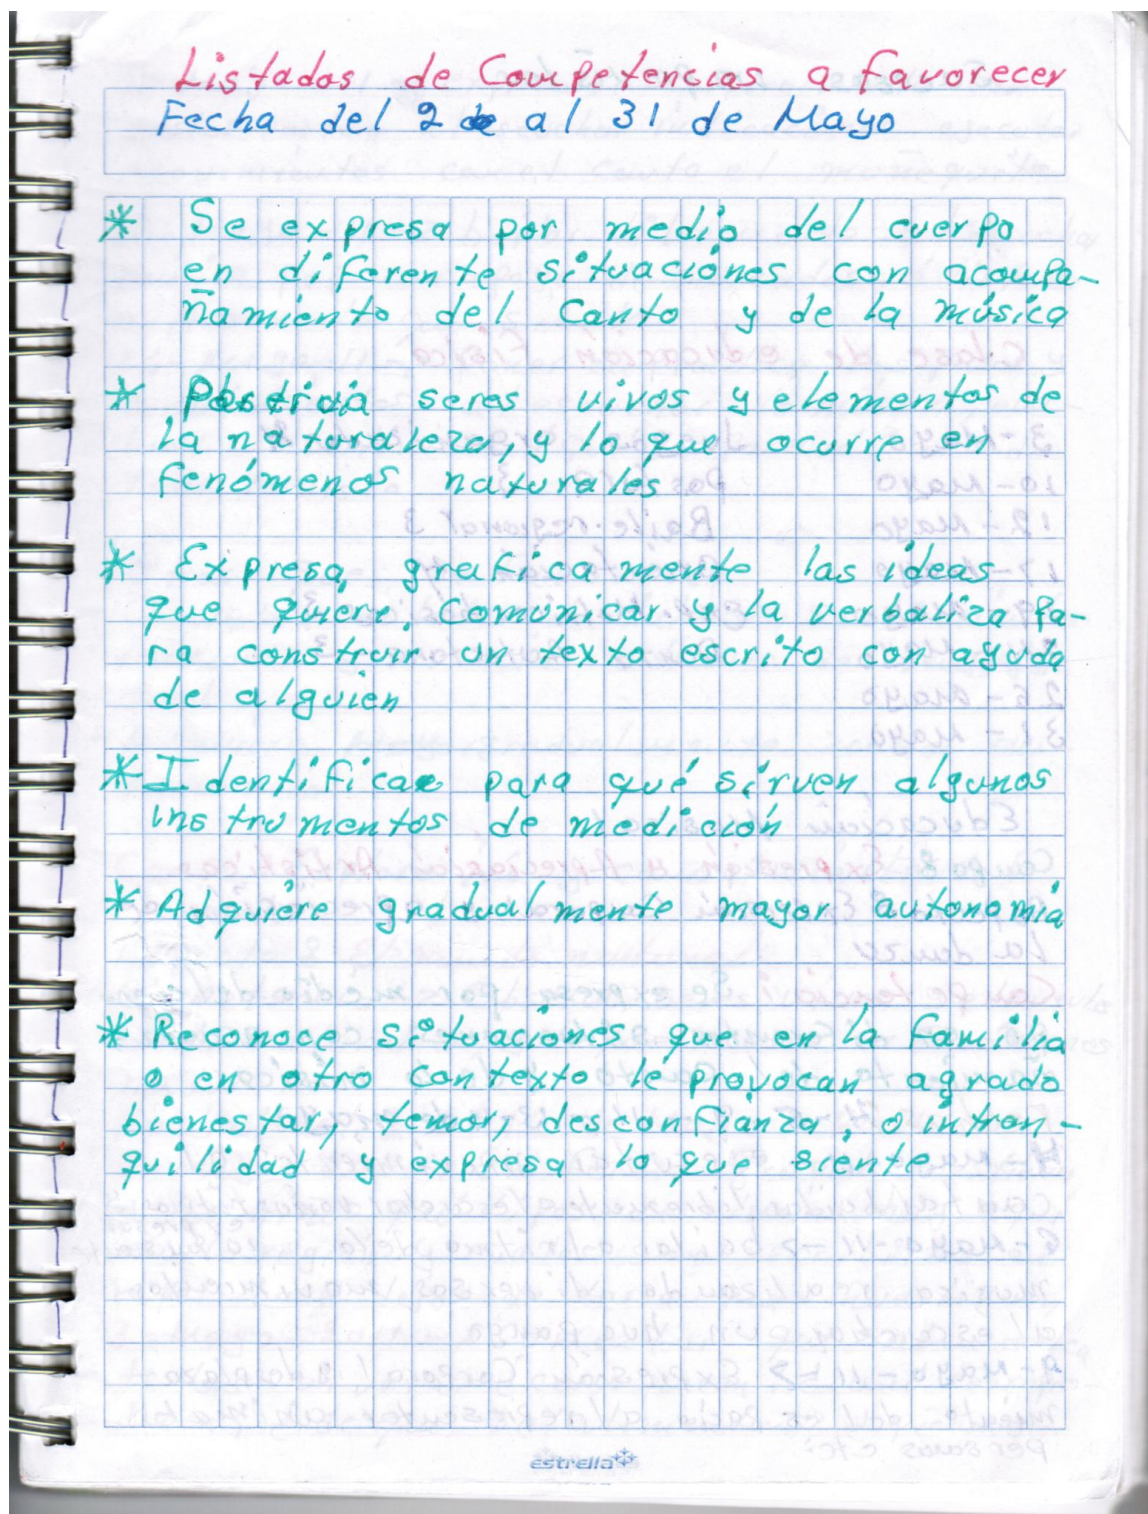 Listados de Competencias a favorecer
Fecha del 2 de al 31 de Mayo
* Se expresa por medio del cuerpo
en diferente situaciones con acompa-
ñamiento del Canto y de la música
* seres vivos y elementos de
la naturaleza, y lo que ocurre en
fenómenos naturales
* Expresa graficamente las ideas
que quiere comunicar y la verbaliza pa-
ra construir un texto escrito con ayuda
de alguien
* Identifica para qué sirven algunos
instrumentos de medición
* Adquiere gradualmente mayor autonomia
* Reconoce situaciones que en la familia
o en otro contexto le provocan agrado
bienestar, temor, desconfianza, o intran-
quilidad y expresa lo que siente
estrella